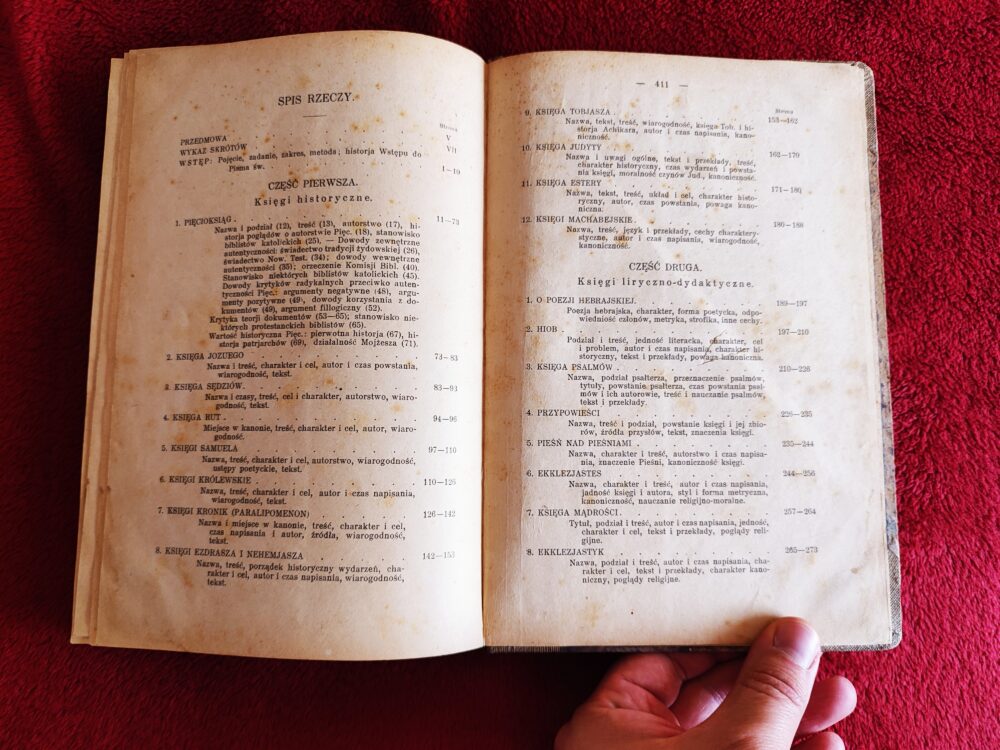 SPIS RZECZY.
Strona
PRZEDMOWA . . . . . . . . . . V
WYKAZ SKRÓTÓW . . . . . . . . . . VII
WSTĘP: Pojęcie, zadanie, zakres, metoda; historja Wstępu do
Pisma św. . . . . . . . . . . 1—10
CZĘŚĆ PIERWSZA.
Księgi historyczne.
1. PIĘCIOKSIĄG . . . . . . . . . . 11—73
Nazwa i podział (12), treść (13), autorstwo (17), hi-
storja poglądów o autorstwie Pięc. (18), stanowisko
biblistów katolickich (25). — Dowody zewnętrzne
autentyczności: świadectwo tradycji żydowskiej (26),
świadectwo Now. Test. (34); dowody wewnętrzne
autentyczności (35); orzeczenie Komisji Bibl. (40).
Stanowisko niektórych biblistów katolickich (45).
Dowody krytyków radykalnych przeciwko auten-
tyczności Pięc.: argumenty negatywne (48), argu-
menty pozytywne (49), dowody korzystania z do-
kumentów (49), argument fillogiczny (52).
Krytyka teorji dokumentów (53—65); stanowisko nie-
których protestanckich biblistów (65).
Wartość historyczna Pięc.: pierwotna historja (67), hi-
storja patrjarchów (69), działalność Mojżesza (71).
2. KSIĘGA JOZUEGO . . . . . . . . . . 73—83
Nazwa i treść, charakter i cel, autor i czas powstania,
wiarogodność, tekst.
3. KSIĘGA SĘDZIÓW . . . . . . . . . . 83—93
Nazwa i czasy, treść, cel i charakter, autorstwo, wiaro-
godność, tekst.
4. KSIĘGA RUT . . . . . . . . . . 94—96
Miejsce w kanonie, treść, charakter i cel, autor, wiaro-
godność.
5. KSIĘGI SAMUELA . . . . . . . . . . 97—110
Nazwa, treść, charakter i cel, autorstwo, wiarogodność,
ustępy poetyckie, tekst.
6. KSIĘGI KRÓLEWSKIE . . . . . . . . . . 110—126
Nazwa, treść, charakter i cel, autor i czas napisania,
wiarogodność, tekst.
7. KSIĘGI KRONIK (PARALIPOMENON) . . . . . . 126—142
Nazwa i miejsce w kanonie, treść, charakter i cel,
czas napisania i autor, źródła, wiarogodność,
tekst.
8. KSIĘGI EZDRASZA I NEHEMJASZA . . . . . . 142—153
Nazwa, treść, porządek historyczny wydarzeń, cha-
rakter i cel, autor i czas napisania, wiarogodność,
tekst.
— 411 —
Strona
9. KSIĘGA TOBJASZA . . . . . . . . . . 153—162
Nazwa, tekst, treść, wiarogodność, księga Tob. i hi-
storja Achikara, autor i czas napisania, kano-
niczność.
10. KSIĘGA JUDYTY . . . . . . . . . . 162—179
Nazwa i uwagi ogólne, tekst i przekłady, treść,
charakter historyczny, czas wydarzeń i powsta-
nia księgi, moralność czynów Jud., kanoniczność.
11. KSIĘGA ESTERY . . . . . . . . . . 171—180
Nazwa, tekst, treść, układ i cel, charakter histo-
ryczny, autor, czas powstania, powaga kano-
niczna.
12. KSIĘGI MACHABEJSKIE . . . . . . . . . . 180—188
Nazwa, treść, język i przekłady, cechy charaktery-
styczne, autor i czas napisania, wiarogodność,
kanoniczność.
CZĘŚĆ DRUGA.
Księgi liryczno-dydaktyczne.
1. O POEZJI HEBRAJSKIEJ. . . . . . . . . . 189—197
Poezja hebrajska, charakter, forma poetycka, odpo-
wiedniość członów, metryka, strofika, inne cechy.
2. HIOB . . . . . . . . . . 197—210
Podział i treść, jedność literacka, charakter, cel
i problem, autor i czas napisania, charakter hi-
storyczny, tekst i przekłady, powaga kanoniczna.
3. KSIĘGA PSALMÓW . . . . . . . . . . 210—226
Nazwa, podział psałterza, przeznaczenie psalmów,
tytuły, powstanie psałterza, czas powstania psal-
mów i ich autorowie, treść i nauczanie psalmów,
tekst i przekłady.
4. PRZYPOWIEŚCI . . . . . . . . . . 226—235
Nazwa, treść i podział, powstanie księgi i jej zbio-
rów, źródła przysłów, tekst, znaczenie księgi.
5. PIEŚŃ NAD PIEŚNIAMI . . . . . . . . . . 235—244
Nazwa, charakter i treść, autorstwo i czas napisa-
nia, znaczenie Pieśni, kanoniczność księgi.
6. EKKLEZJASTES . . . . . . . . . . 244—256
Nazwa, charakter i treść, autor i czas napisania,
jadność księgi i autora, styl i forma metryczna,
kanoniczność, nauczanie religijno-moralne.
7. KSIĘGA MĄDROŚCI . . . . . . . . . . 257—264
Tytuł, podział i treść, autor i czas napisania, jedność,
charakter i cel, tekst i przekłady, poglądy reli-
gijne.
8. EKKLEZJASTYK . . . . . . . . . . 265—273
Nazwa, podział i treść, autor i czas napisania, cha-
rakter i cel, tekst i przekłady, charakter kano-
niczny, poglądy religijne.